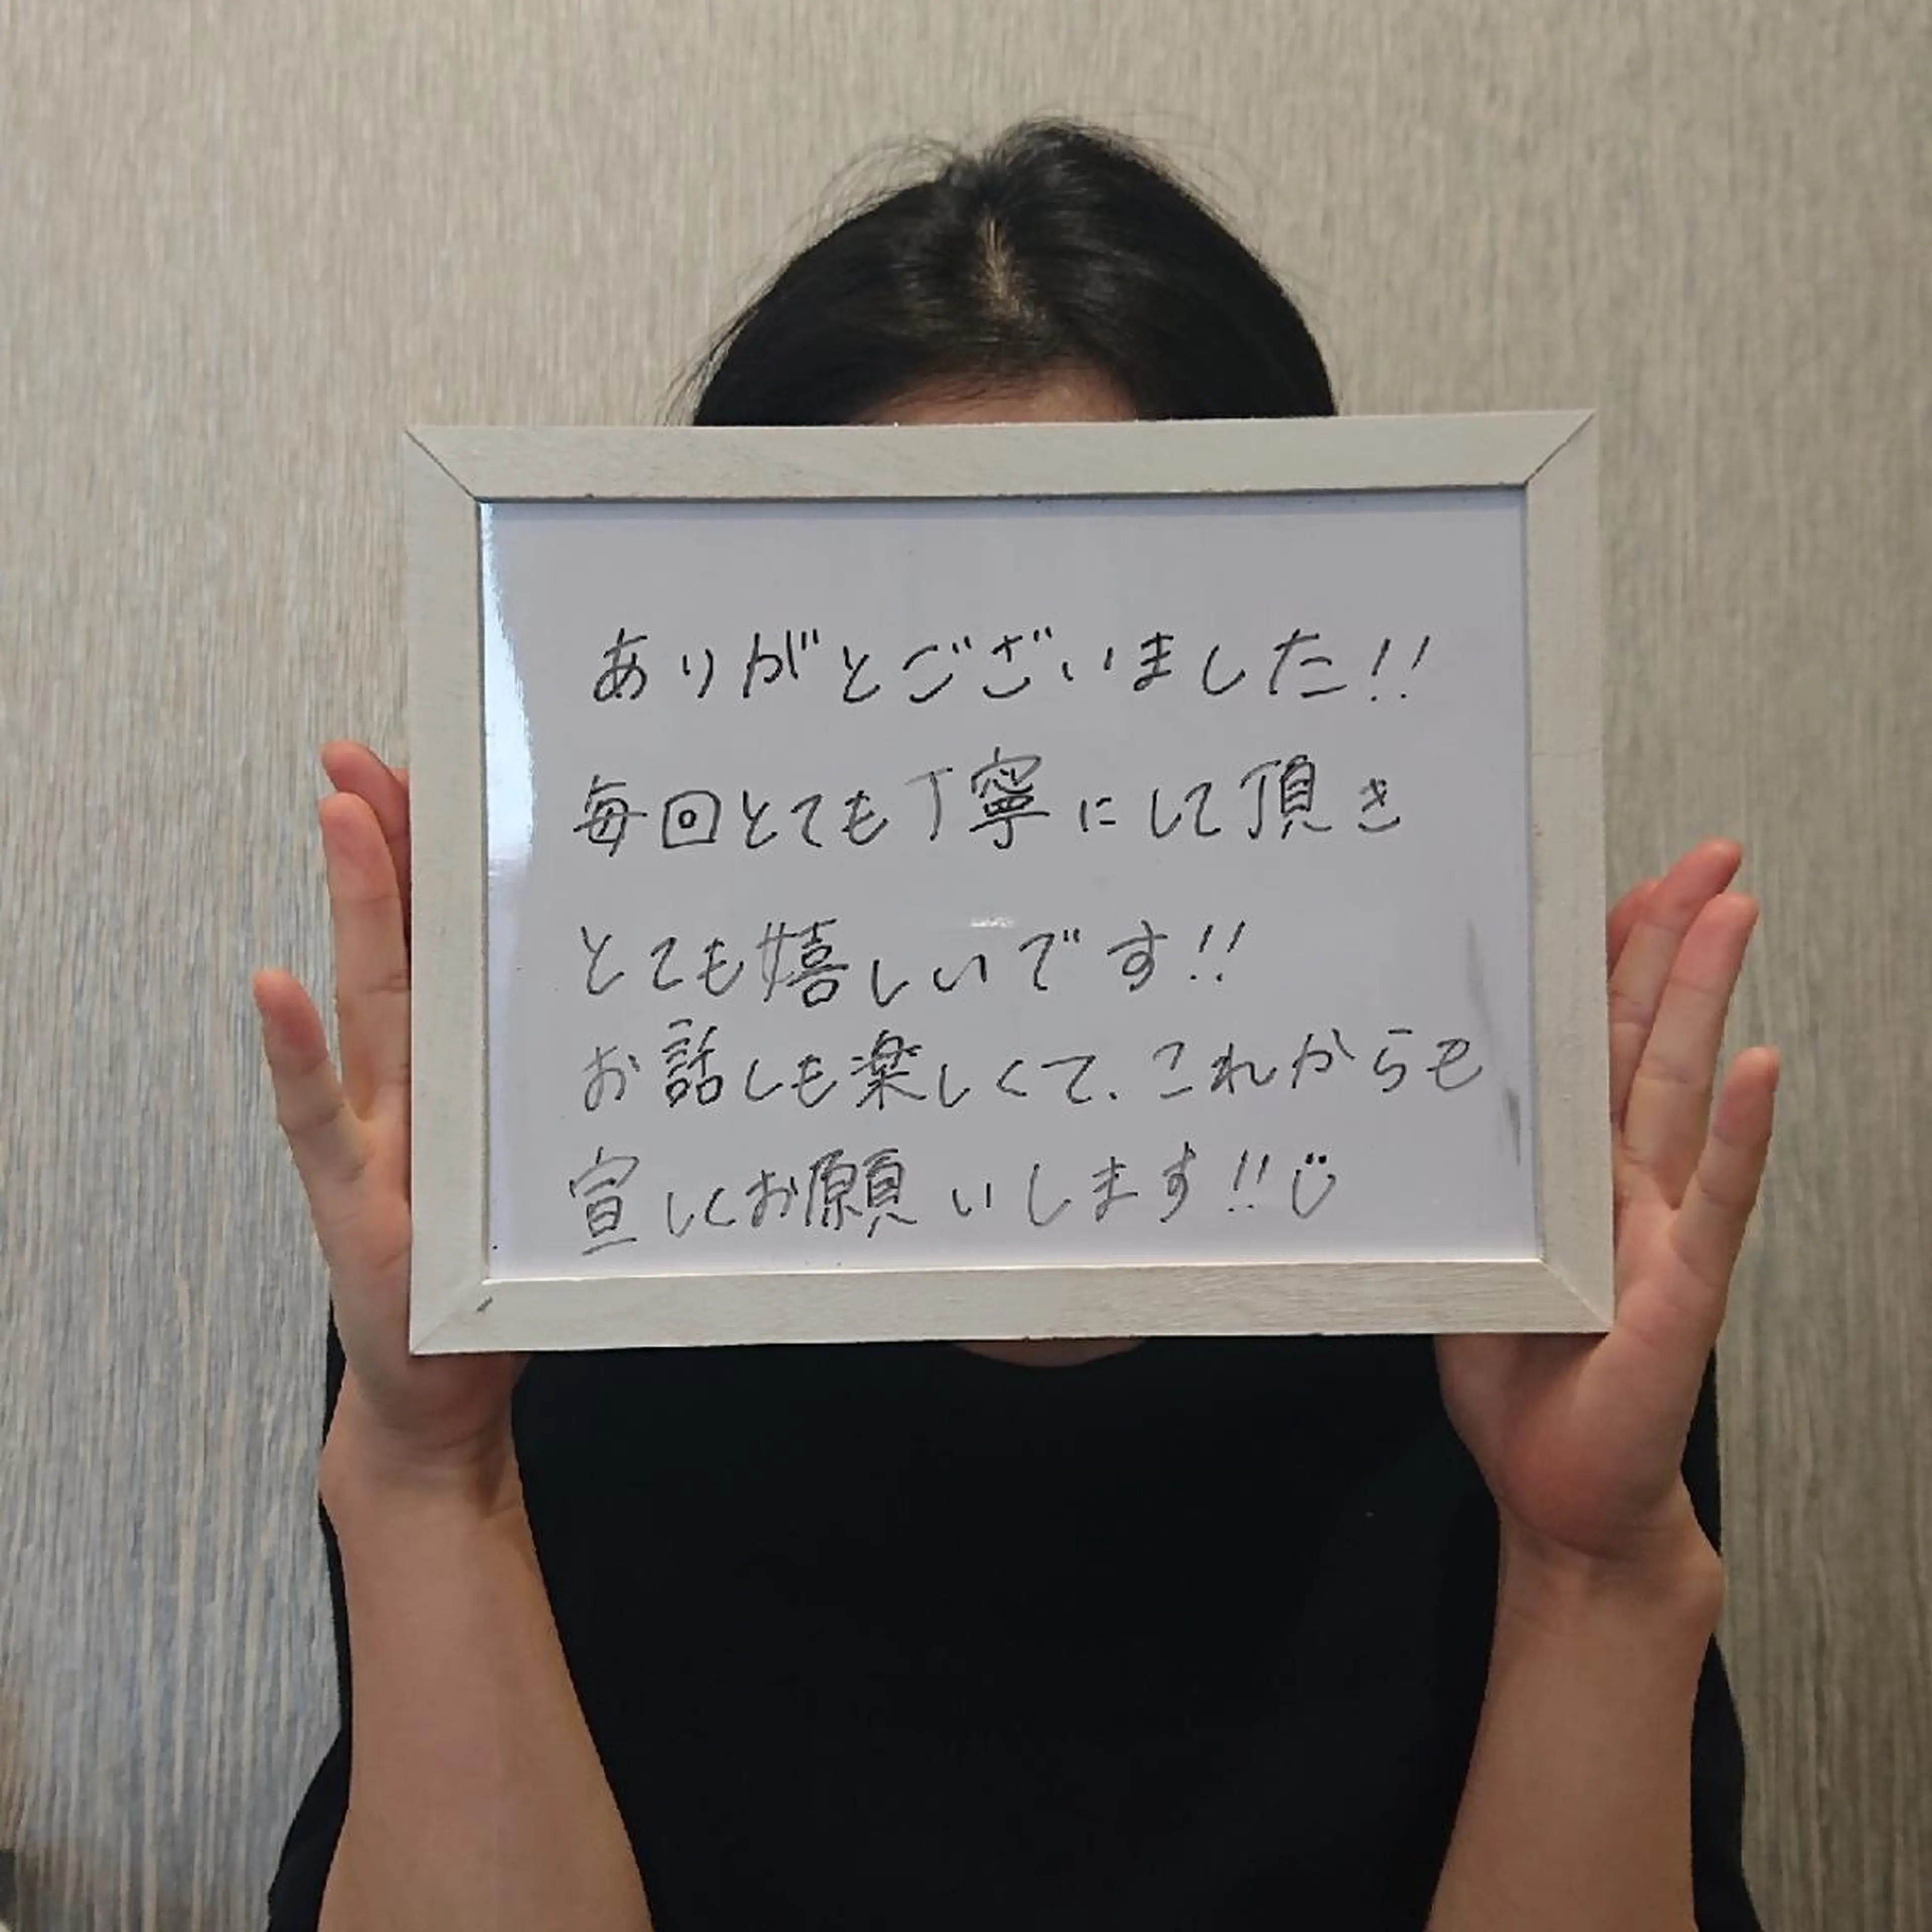 ありがとございました!!
毎回とても丁寧にして頂き
とても嬉しいです!!
お話しも楽しくて、これからも
宣しくお願いします!!